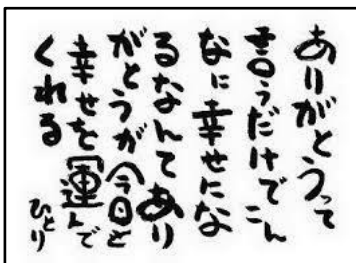 ありがとうって
言うだけでこん
なに幸せにな
るなんてあり
がとうが今日も
幸せを運んで
くれる
ひとり